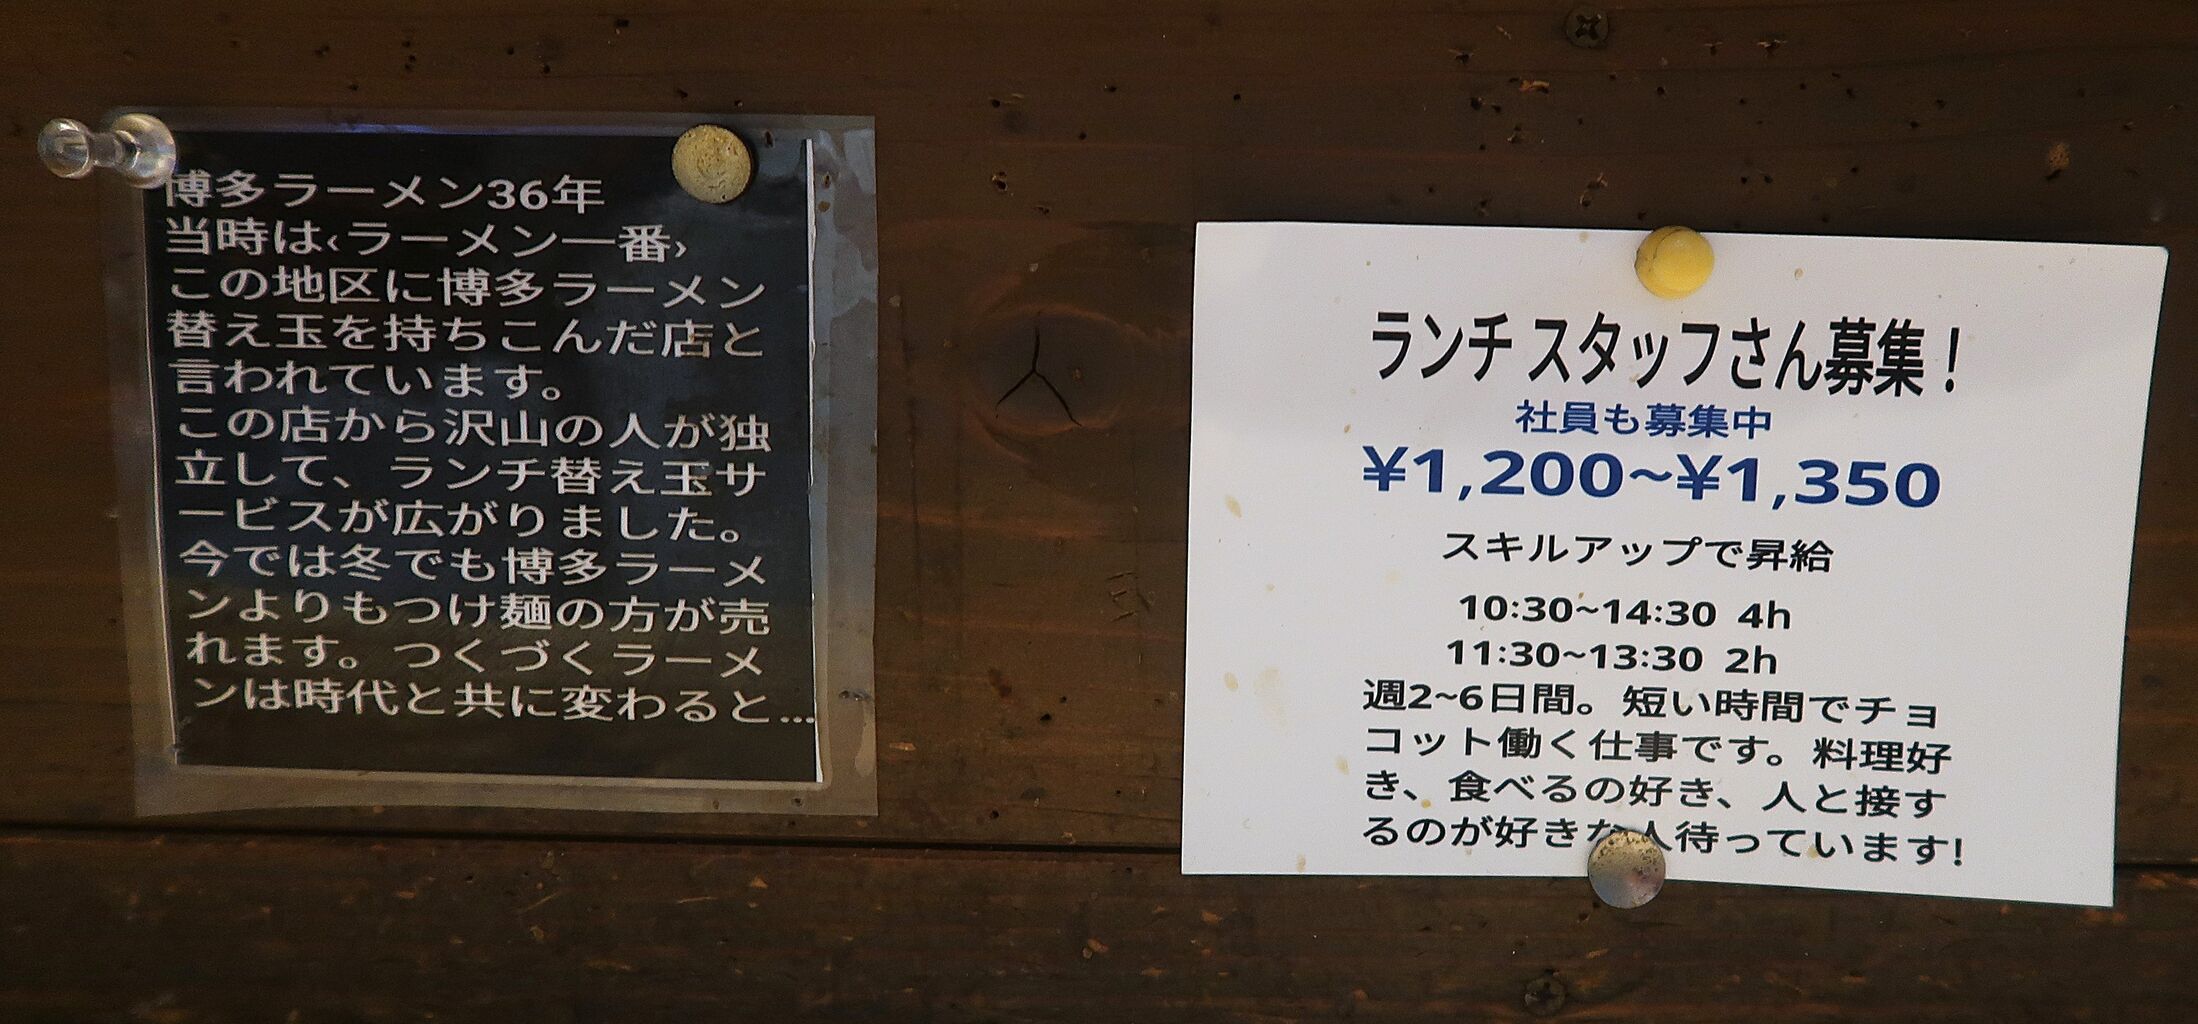 博多ラーメン36年
当時は‹ラーメン一番›
この地区に博多ラーメン
替え玉を持ちこんだ店と
言われています。
この店から沢山の人が独
立して、ランチ替え玉サ
ービスが広がりました。
今では冬でも博多ラーメ
ンよりもつけ麺の方が売
れます。つくづくラーメ
ンは時代と共に変わると...
ランチスタッフさん募集！
社員も募集中
¥1,200~¥1,350
スキルアップで昇給
10:30~14:30 4h
11:30~13:30 2h
週2~6日間。短い時間でチョ
コット働く仕事です。料理好
き、食べるの好き、人と接す
るのが好きな人待っています!